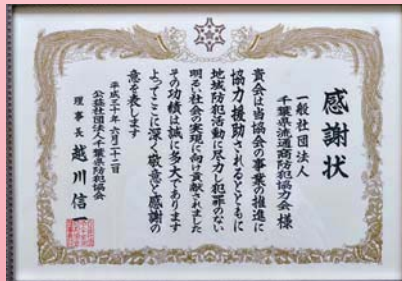 感謝状
一般社団法人
千葉県流通商防犯協力会 様
貴会は当協会の事業の推進に
協力援助されるとともに
地域防犯活動に尽力し犯罪のない
明るい社会の実現に向け貢献されました
その功績は誠に多大であります
よってここに深く敬意と感謝の
意を表します
平成三十年六月二十二日
公益社団法人千葉県防犯協会
理事長 越川信一